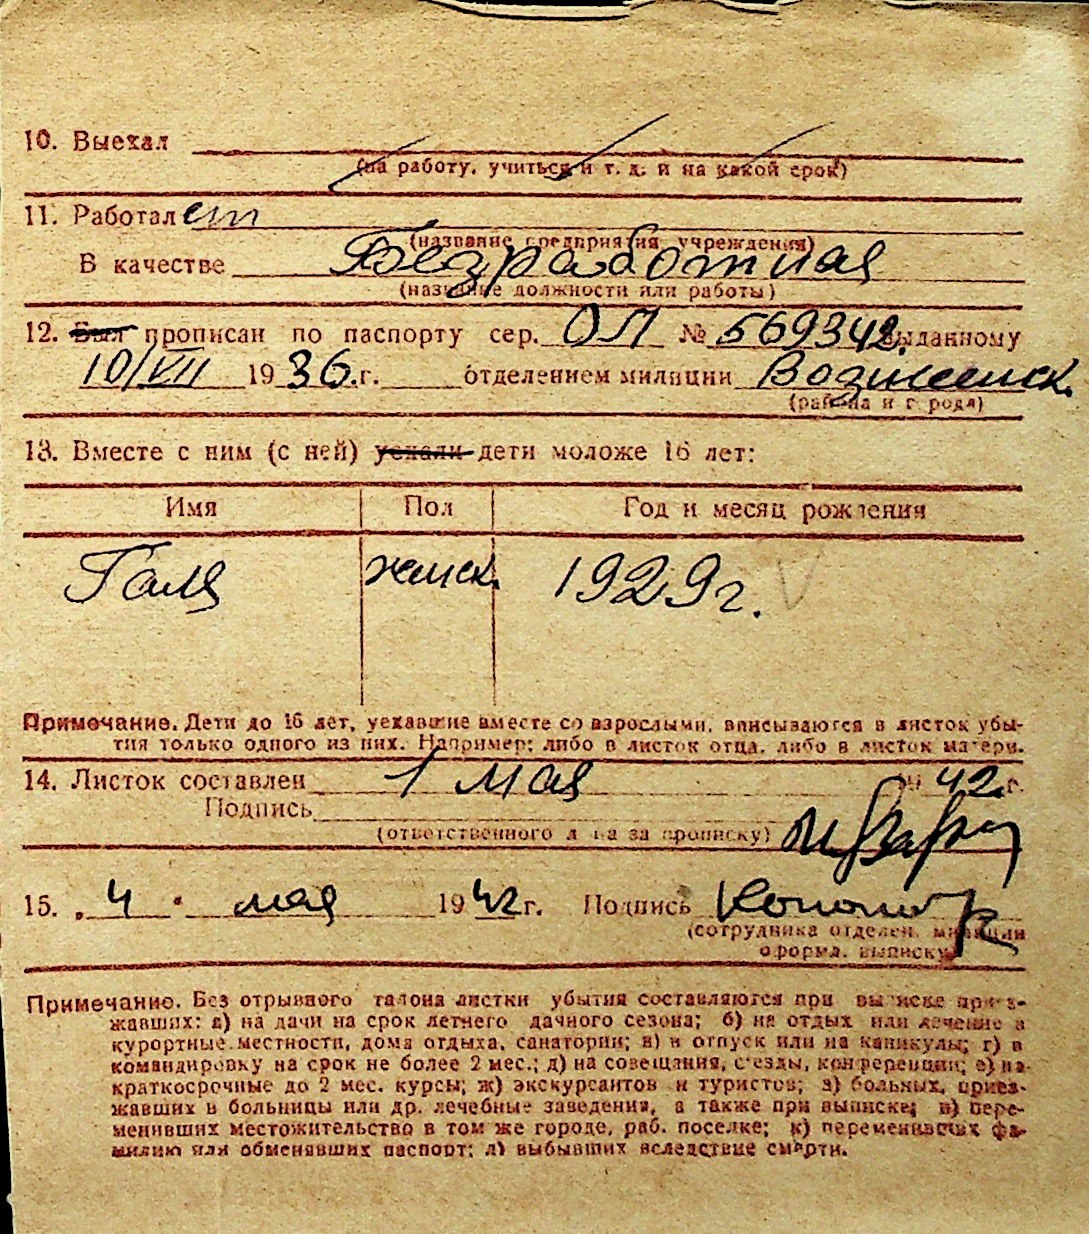 10. Выехал
(на работу, учиться и т. д. и на какой срок)
11. Работает
(название предприятия учреждения)
В качестве Безработная
(название должности или работы)
12. Был прописан по паспорту сер. ОЛ № 569342 выданному
10/VII 1936.г. отделением милиции Вознесенск.
(района и города)
13. Вместе с ним (с ней) уехали дети моложе 16 лет:
Имя Пол Год и месяц рождения
Галя женск. 1929г.
Примечание. Дети до 16 лет, уехавшие вместе со взрослыми, вписываются в листок убы-
тия только одного из них. Например: либо в листок отца, либо в листок матери.
14. Листок составлен 1 мая 1942 г.
Подпись
(ответственного л-ца за прописку)
15. „4" мая 1942 г. Подпись
(сотрудника отделен. милиции
оформл. выписку)
Примечание. Без отрывного талона листки убытия составляются при выписке приез-
жавших: а) на дачи на срок летнего дачного сезона; б) на отдых или лечение в
курортные местности, дома отдыха, санатории; в) в отпуск или на каникулы; г) в
командировку на срок не более 2 мес.; д) на совещания, с'езды, конференции; е) на
краткосрочные до 2 мес. курсы; ж) экскурсантов и туристов; з) больных, приез-
жавших в больницы или др. лечебные заведения, а также при выписке; и) пере-
менивших местожительство в том же городе, раб. поселке; к) переменивших фа-
милию или обменявших паспорт; л) выбывших вследствие смерти.